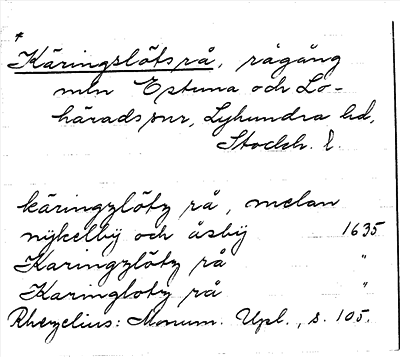 *
Käringslöts rå, rågång
mln Estuna och Lo-
härads snr, Lyhundra hd,
Stockh. l.
käringzlötz rå, melan
nÿkelbÿ och åsbÿ 1635
Karingzlötz rå "
Karinglotz rå "
Rhezelius: Monum. Upl., s. 105.